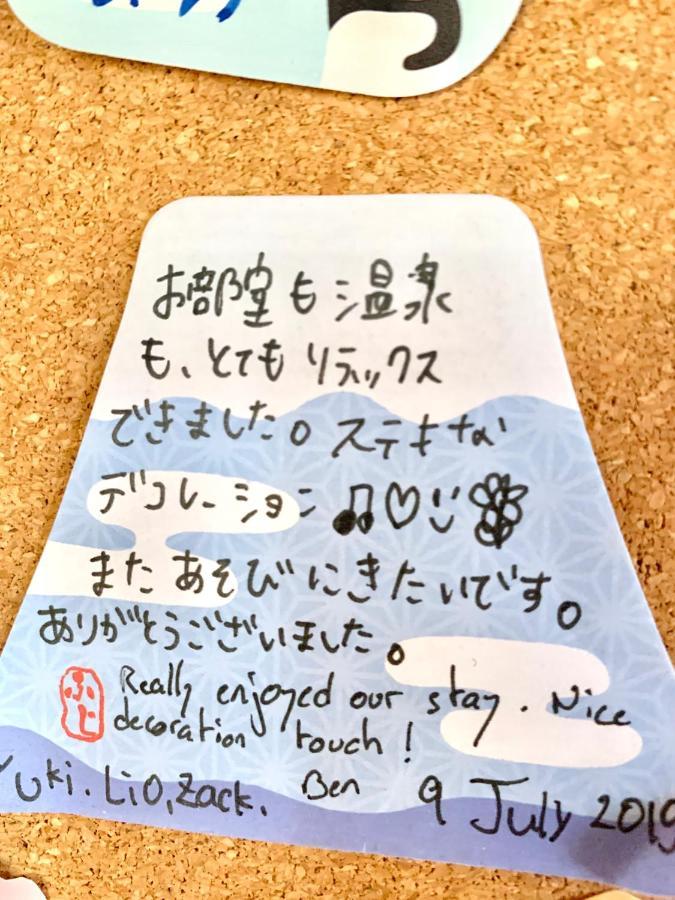 お部屋も温泉
も、とてもリラックス
できました。ステキな
デコレーション♫♡
またあそびにきたいです。
ありがとうございました。
ふじ
Really enjoyed our stay. Nice
decoration touch!
Yuki. Lio, Zack. Ben 9 July 2019